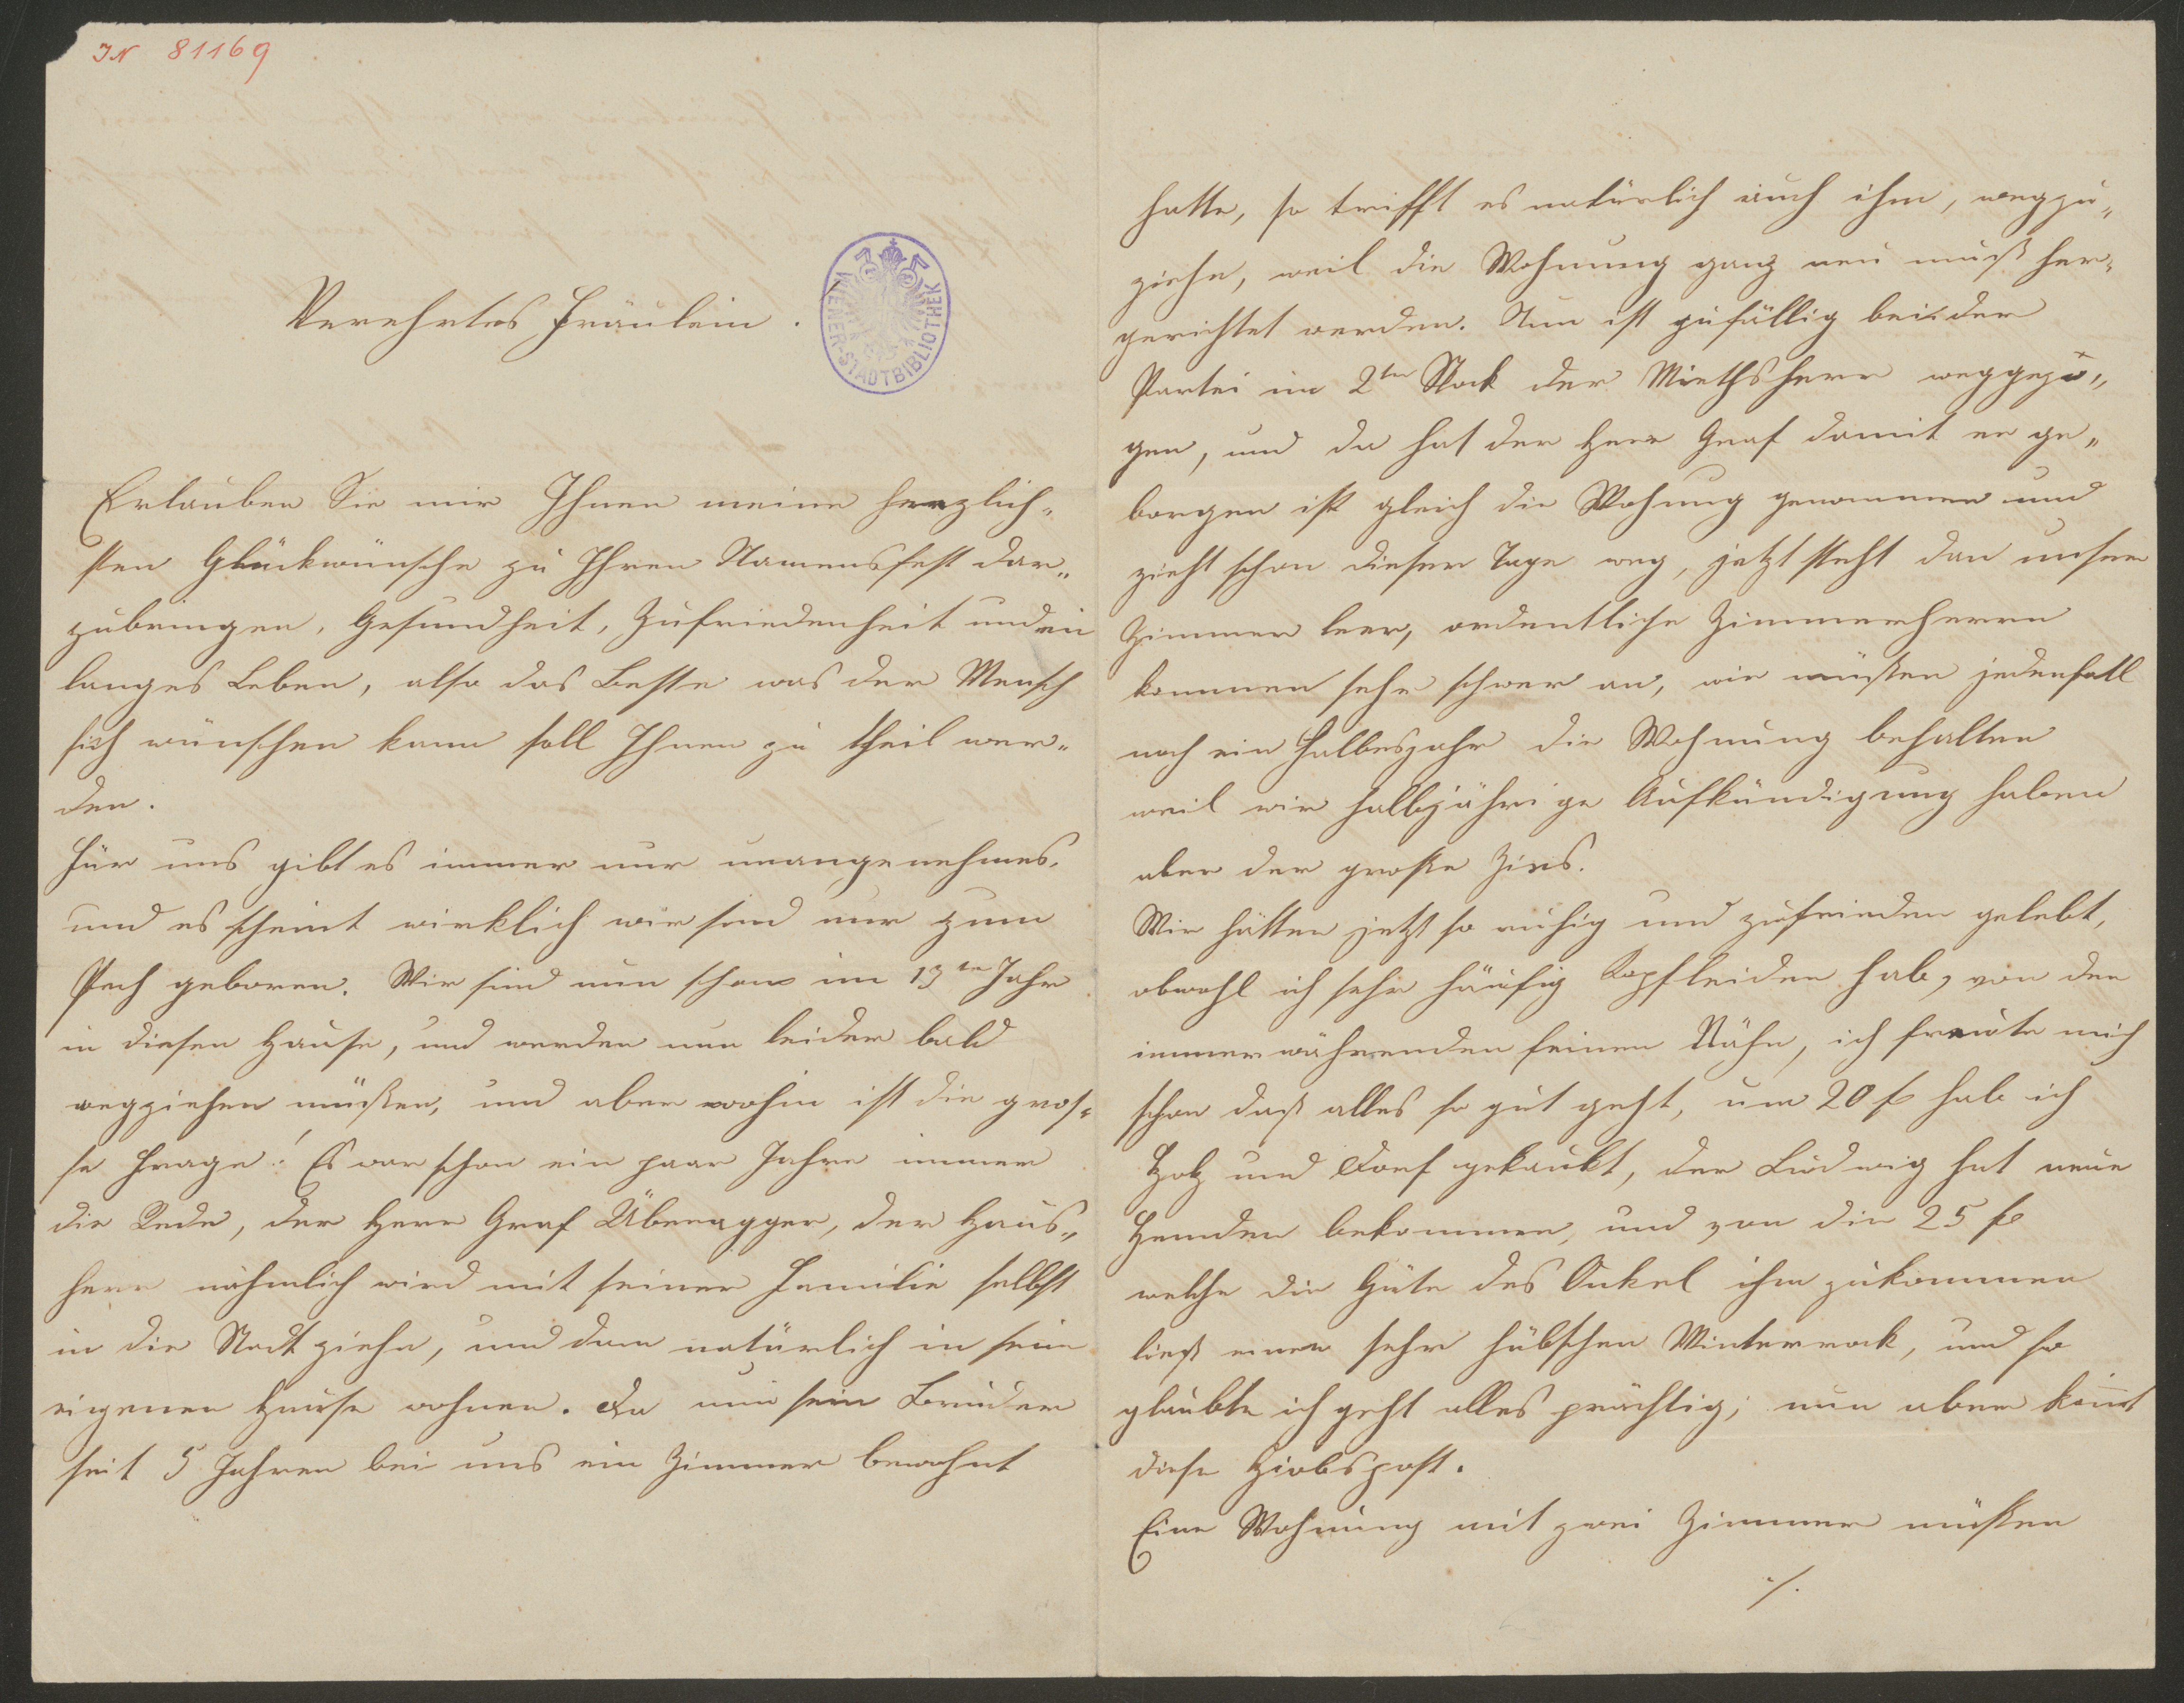 IN 81169
Verehrtes Fräulein.
WIENER-STADTBIBLIOTHEK
Erlauben Sie mir Ihnen meine herzlich-
sten Glückwünsche zu Ihren Namensfest dar-
zubringen, Gesundheit, Zufriedenheit und ein
langes Leben, also das Beste was der Mensch
sich wünschen kann soll Ihnen zu theil wer-
den.
Für uns gibt es immer nur unangenehmes,
und es scheint wirklich wir sind nur zum
Pech geboren. Wir sind nun schon im 13te Jahr
in diesen Hause, und werden nun leider bald
wegziehen müßen, und aber wohin ist die gros-
se Frage! Es war schon ein paar Jahre immer
die Rede, der Herr Graf Überagger, der Haus-
herr nähmlich wird mit seiner Familie selbst
in die Stadt ziehn, und dan natürlich in sein
eigenen Hause wohnen. Da nun sein Bruder
seit 5 Jahren bei uns ein Zimmer bewohnt
hatte, so trifft es natürlich auch ihm, wegzu-
ziehn, weil die Wohnung ganz neu muß her-
gerichtet werden. Nun ist zufällig bei der
Partei im 2ten Stock der Miethsherr weggezo-
gen, und da hat der Herr Graf damit er ge-
borgen ist gleich die Wohnung genommen und
zieht schon dieser Tage weg, jetzt steht dan unser
Zimmer leer, ordentliche Zimmerherrn
kommen sehr schwer an, wir müßen jedenfall
noch ein Halbesjahr die Wohnung behalten
weil wir halbjährige Aufkündigung haben
aber der große Zins.
Wir hätten jetzt so ruhig und zufrieden gelebt,
obwohl ich sehr häufig Kopfleiden hab, von den
immerwährenden feinen Nähn, ich freute mich
schon daß alles so gut geht, um 20 fl hab ich
Holz und Torf gekauft, der Ludwig hat neue
Hemden bekommen, und von die 25 fl
welche die Güte des Onkel ihm zukommen
ließ einen sehr hübschen Winterrock, und so
glaubte ich geht alles prächtig; nun aber kömt
diese Hiobspost.
Eine Wohnung mit zwei Zimmer müßen
./.